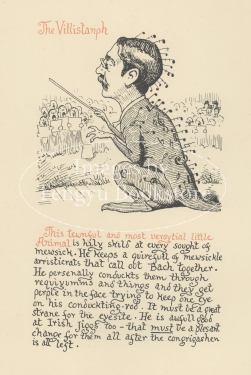 The Villistanph
This tewnful and most versytial little
Animal is hily skild at every sought of
mewsick. He keeps a quirefull of mewsickle
arristicrats that call obt Bach together.
He personally conduckts them through
requiyumms and things and they get
perple in the face trying to keep one eye
on his conbuckting-rod. It must be a great
strane for the eyesite. He is awfull good
at Irish Jiggs too - that must be a plesant
change for them all after the congrigashen
is all left.